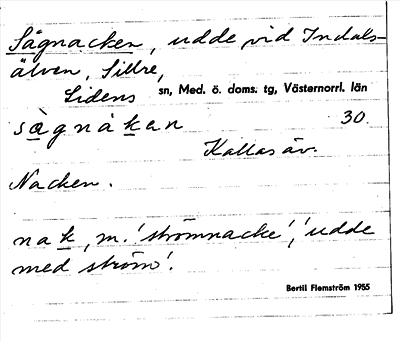 Sågnacken, udde vid Indals-
älven, Sillre,
Lidens sn, Med. ö. doms. tg, Västernorrl. län
sågnákan 30.
Kallas äv.
Nacken.
nak, m. 'strömnacke', 'udde
med ström'.
Bertil Flemström 1955